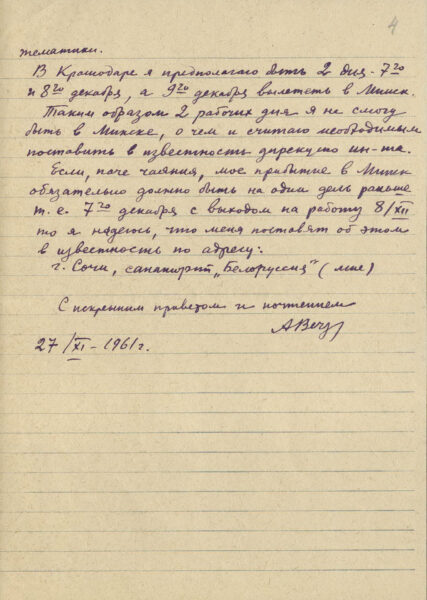 4
тематики.
В Краснодаре я предполагаю быть 2 дня - 7го
и 8го декабря, а 9го декабря вылететь в Минск.
Таким образом 2 рабочих дня я не смогу
быть в Минске, о чем и считаю необходимым
поставить в известность дирекцию ин-та.
Если, паче чаяния, мое прибытие в Минск
обязательно должно быть на один день раньше
т.е. 7го декабря с выходом на работу 8/XII
то я надеюсь, что меня поставят об этом
в известность по адресу:
г. Сочи, санаторий „Белоруссия" (мне)
С искренним приветом и почтением
27/XI - 1961г.